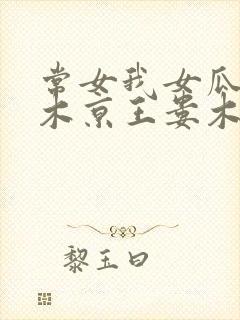 常女我女瓜
木京王娄木
黎玉曰